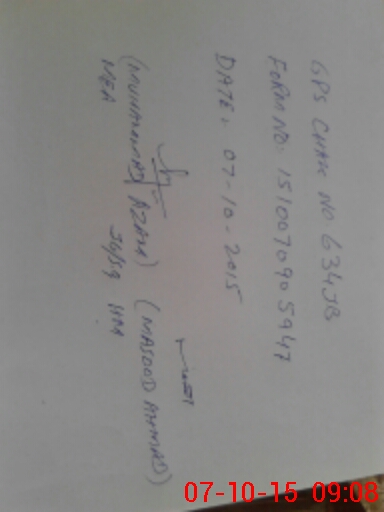 GPS CHAK NO. 634JB
FORM NO: 1510070905947
DATE: 07-10-2015
(MUHAMMAD AZAM) (MASOOD AHMAD)
MEA HM
07-10-15 09:08